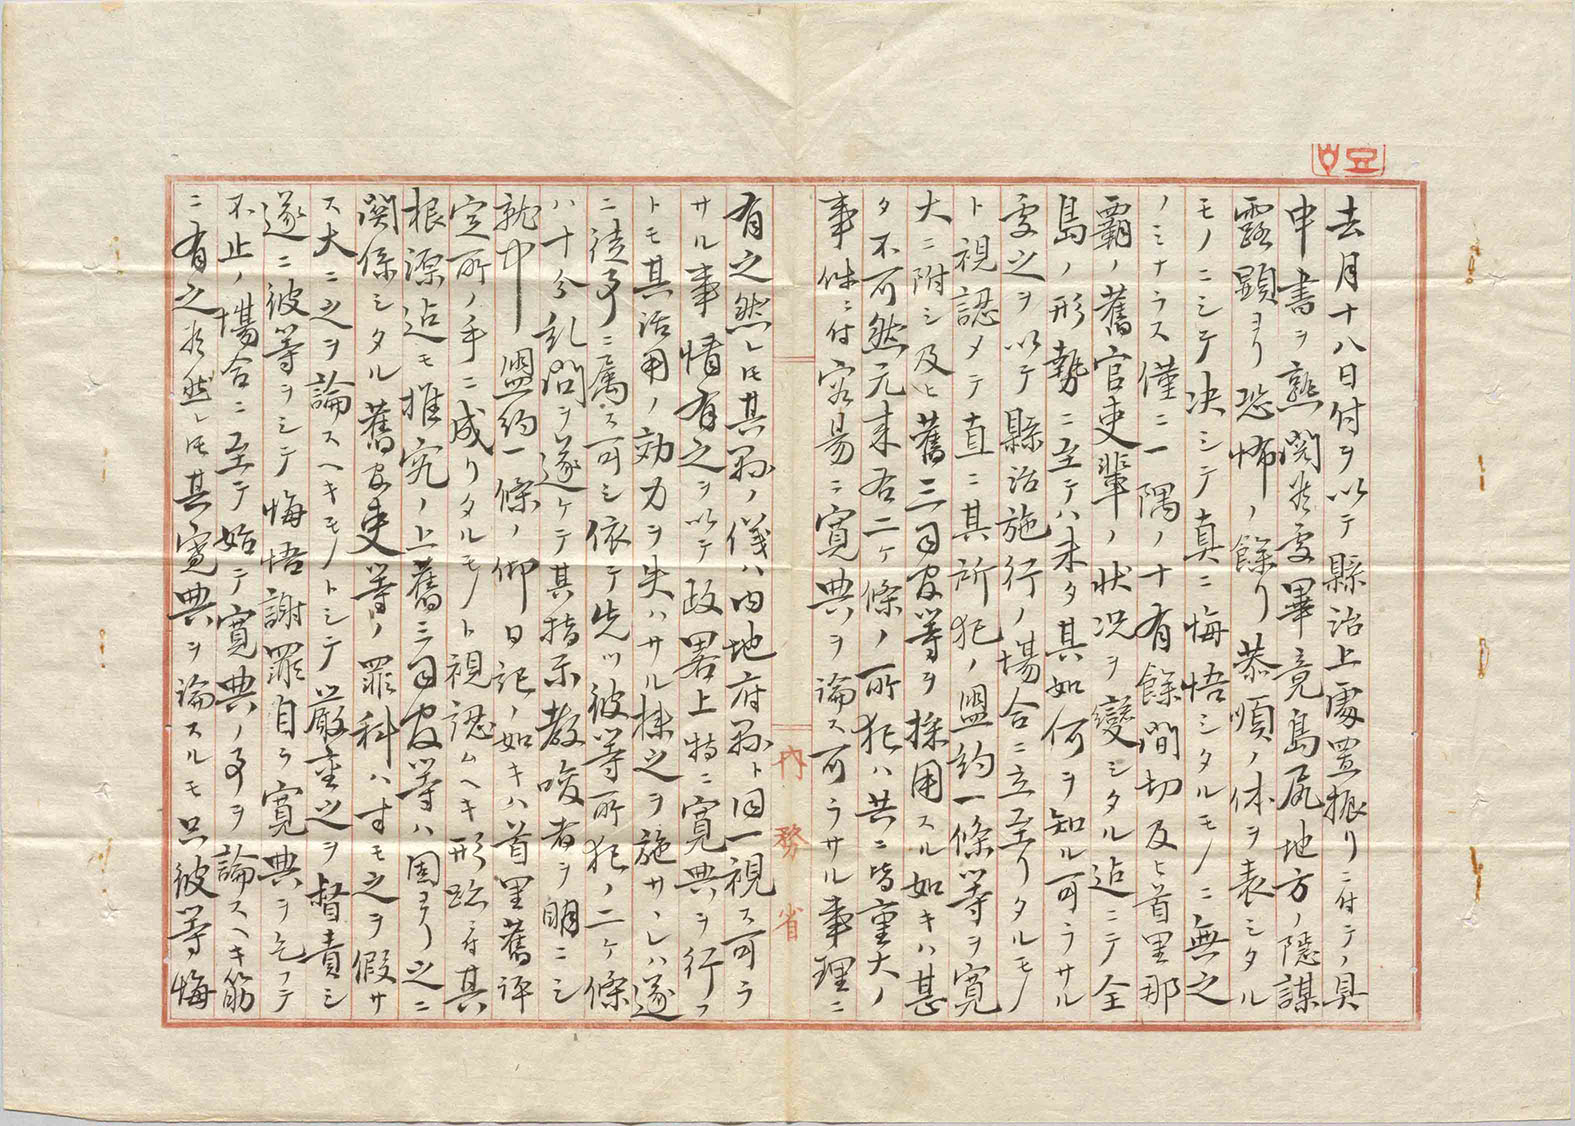 去月十八日付ヲ以テ縣治上處置振リニ付テノ具
申書ヲ熟閲候處畢竟島尻地方ノ隠謀
露顕ヨリ恐怖ノ餘リ恭順ノ体ヲ表シタル
モノニシテ決シテ真ニ悔悟シタルモノニ無之
ノミナラス僅ニ一隅ノ十有餘間切及ヒ首里那
覇ノ舊官吏輩ノ状況ヲ變シタル迠ニテ全
島ノ形勢ニ至テハ未タ其如何ヲ知ル可ラサル
處之ヲ以テ縣治施行ノ場合ニ立至リタルモノ
ト視認メテ直ニ其所犯ノ盟約一條等ヲ寛
大ニ附シ及ヒ舊三司官等ヲ採用スル如キハ甚
タ不可然元来右二ケ條ノ所犯ハ共ニ皆重大ノ
事件ニ付容易ニ寛典ヲ論ス可ラサル事理ニ
有之然レ𪜈其縣ノ儀ハ内地府縣ト同一視ス可ラ
サル事情有之ヲ以テ政畧上特ニ寛典ヲ行フ
トモ其活用ノ効力ヲ失ハサル様之ヲ施サヽレハ遂
ニ徒事ニ属ス可シ依テ先ツ彼等所犯ノ二ケ條
ハ十分糺問ヲ遂ケテ其指示教唆者ヲ明ニシ
就中盟約一條ノ仰日記ノ如キハ首里舊評
定所ノ手ニ成リタルモノト視認ムヘキ形跡ニ付其
根源迠モ推究ノ上舊三司官等ハ固ヨリ之ニ
関係シタル舊官吏等ノ罪科ハ寸モ之ヲ假サ
ス大ニ之ヲ論スヘキモノトシテ以厳重之ヲ督責シ
遂ニ彼等ヲシテ悔悟謝罪自ラ寛典ヲ乞フテ
不止ノ場合ニ至テ始テ寛典ノ事ヲ論スヘキ筋
ニ有之候然レ𪜈其寛典ヲ論スルモ只彼等悔
内務省